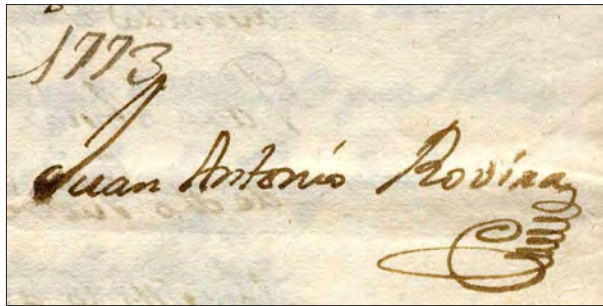 1773
Juan Antonio Rovira